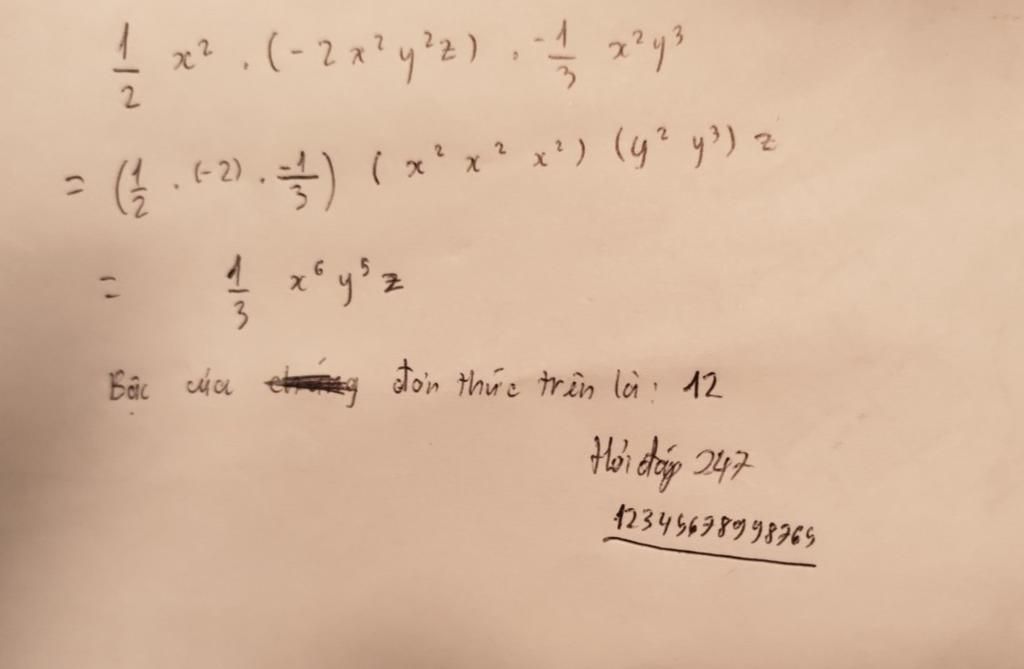 1/2 x² . (-2x²y²z) . -1/3 x²y³
= (1/2 . (-2) . -1/3) (x² x² x²) (y² y³) z
= 1/3 x⁶ y⁵ z
Bậc của đơn thức trên là: 12
Hỏi đáp 247
12345678998765